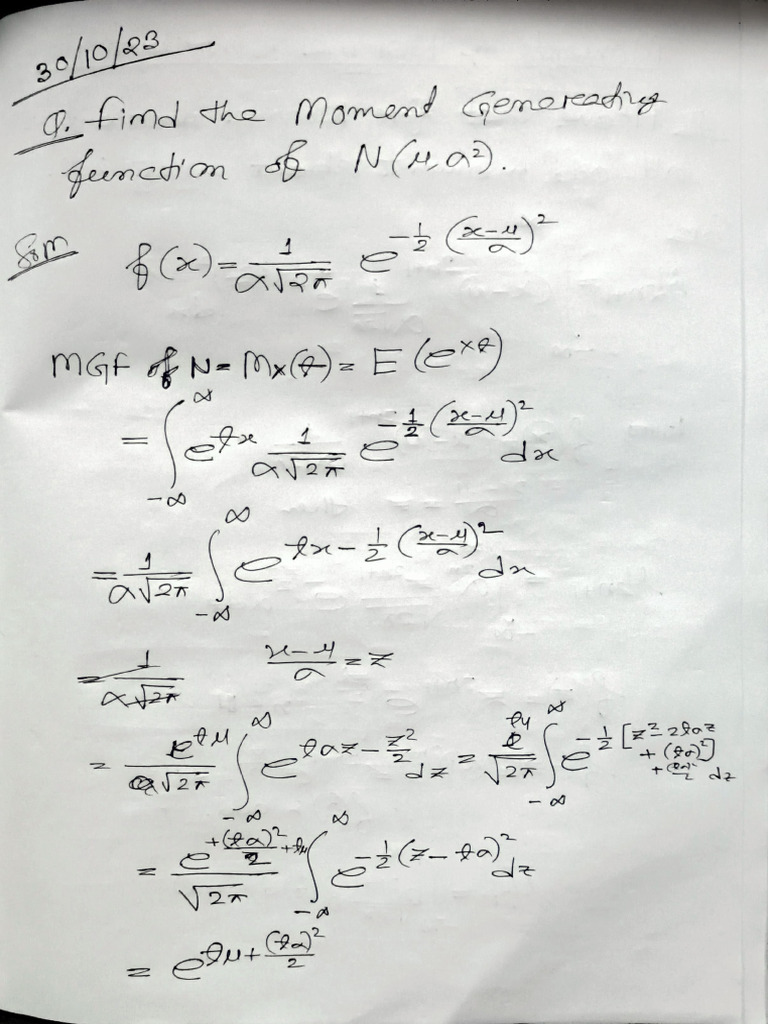 30/10/23
Q. Find the Moment Genereating
function of N(μ, σ²).
Soln f(x) = 1/(σ√2π) e^{-1/2 ((x-μ)/σ)²}
MGF of N = Mx(t) = E(e^{xt})
= ∫_{-∞}^{∞} e^{tx} 1/(σ√2π) e^{-1/2 ((x-μ)/σ)²} dx
= 1/(σ√2π) ∫_{-∞}^{∞} e^{tx - 1/2 ((x-μ)/σ)²} dx
= 1/(σ√2π) (x-μ)/σ = z
= e^{tμ}/√2π ∫_{-∞}^{∞} e^{tσz - z²/2} dz = e^{tμ}/√2π ∫_{-∞}^{∞} e^{-1/2 [z² - 2tσz + (tσ)²] + (tσ)²/2} dz
= e^{+(tσ)²/2 + tμ}/√2π ∫_{-∞}^{∞} e^{-1/2 (z - tσ)²} dz
= e^{tμ + (tσ)²/2}